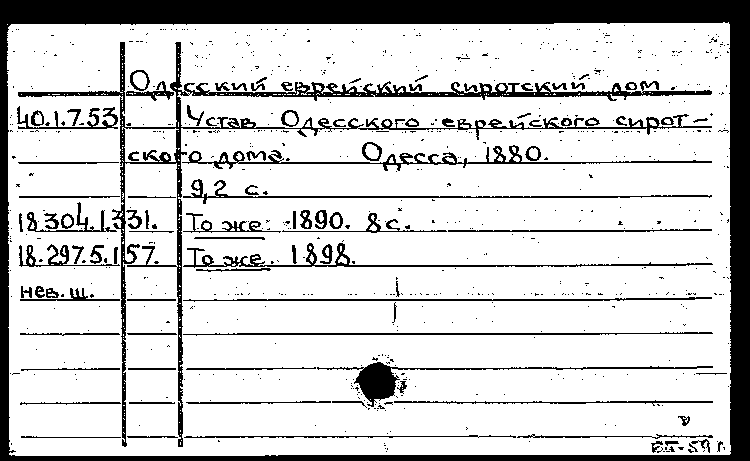 Одесский еврейский сиротский дом.
40.1.7.53. Устав Одесского еврейского сирот-
ского дома. Одесса, 1880.
9,2 с.
18.304.1.331. То же. 1890. 8 с.
18.297.5.157. То же. 1898.
нев. ш.